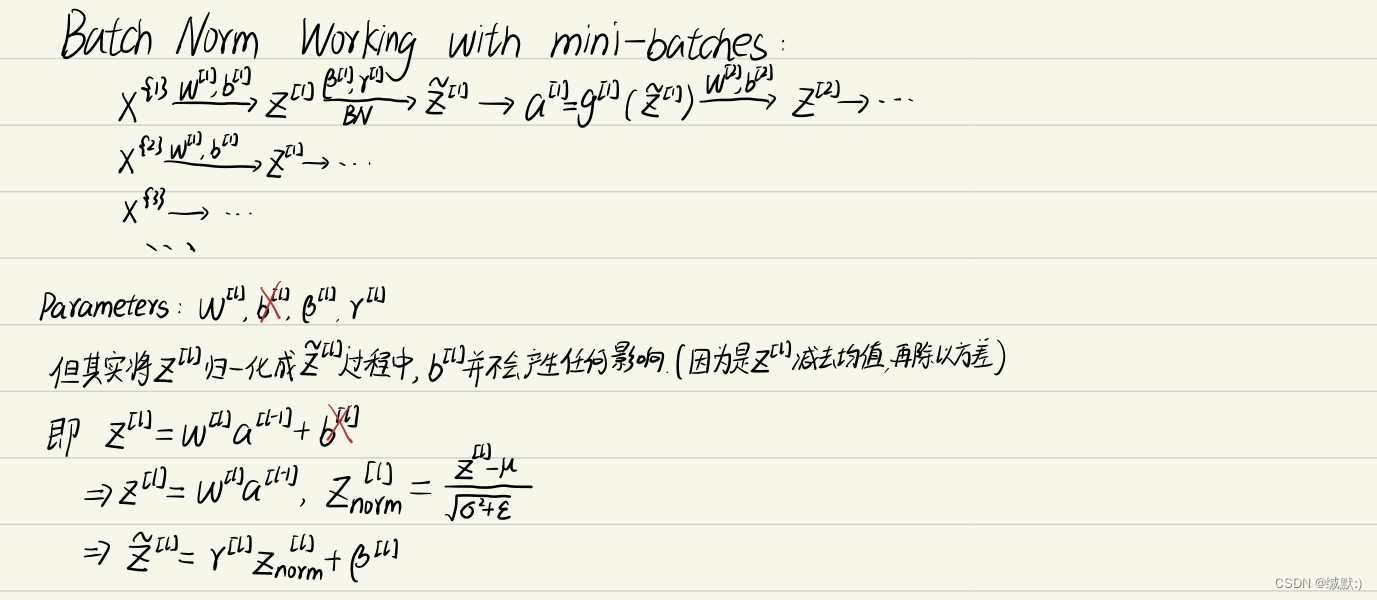 Batch Norm Working with mini-batches:
X^{1} —W^[1], b^[1]→ Z^[1] —β^[1], γ^[1] / BN→ Z̃^[1] → a^[1]=g^[1](Z̃^[1]) —W^[2], b^[2]→ Z^[2] → ···
X^{2} —W^[1], b^[1]→ Z^[1] → ···
X^{3} → ···
····
Parameters: W^[l], b^[l], β^[l], γ^[l]
但其实将Z^[l]归一化成Z̃^[l]过程中, b^[l]并不会产生任何影响.(因为是Z^[l]减去均值,再除以方差)
即 Z^[l] = W^[l]a^[l-1] + b^[l]
⇒ Z^[l] = W^[l]a^[l-1], Z_norm^[l] = (Z^[l]-μ)/√(σ²+ε)
⇒ Z̃^[l] = γ^[l] Z_norm^[l] + β^[l]
CSDN @缄默:)